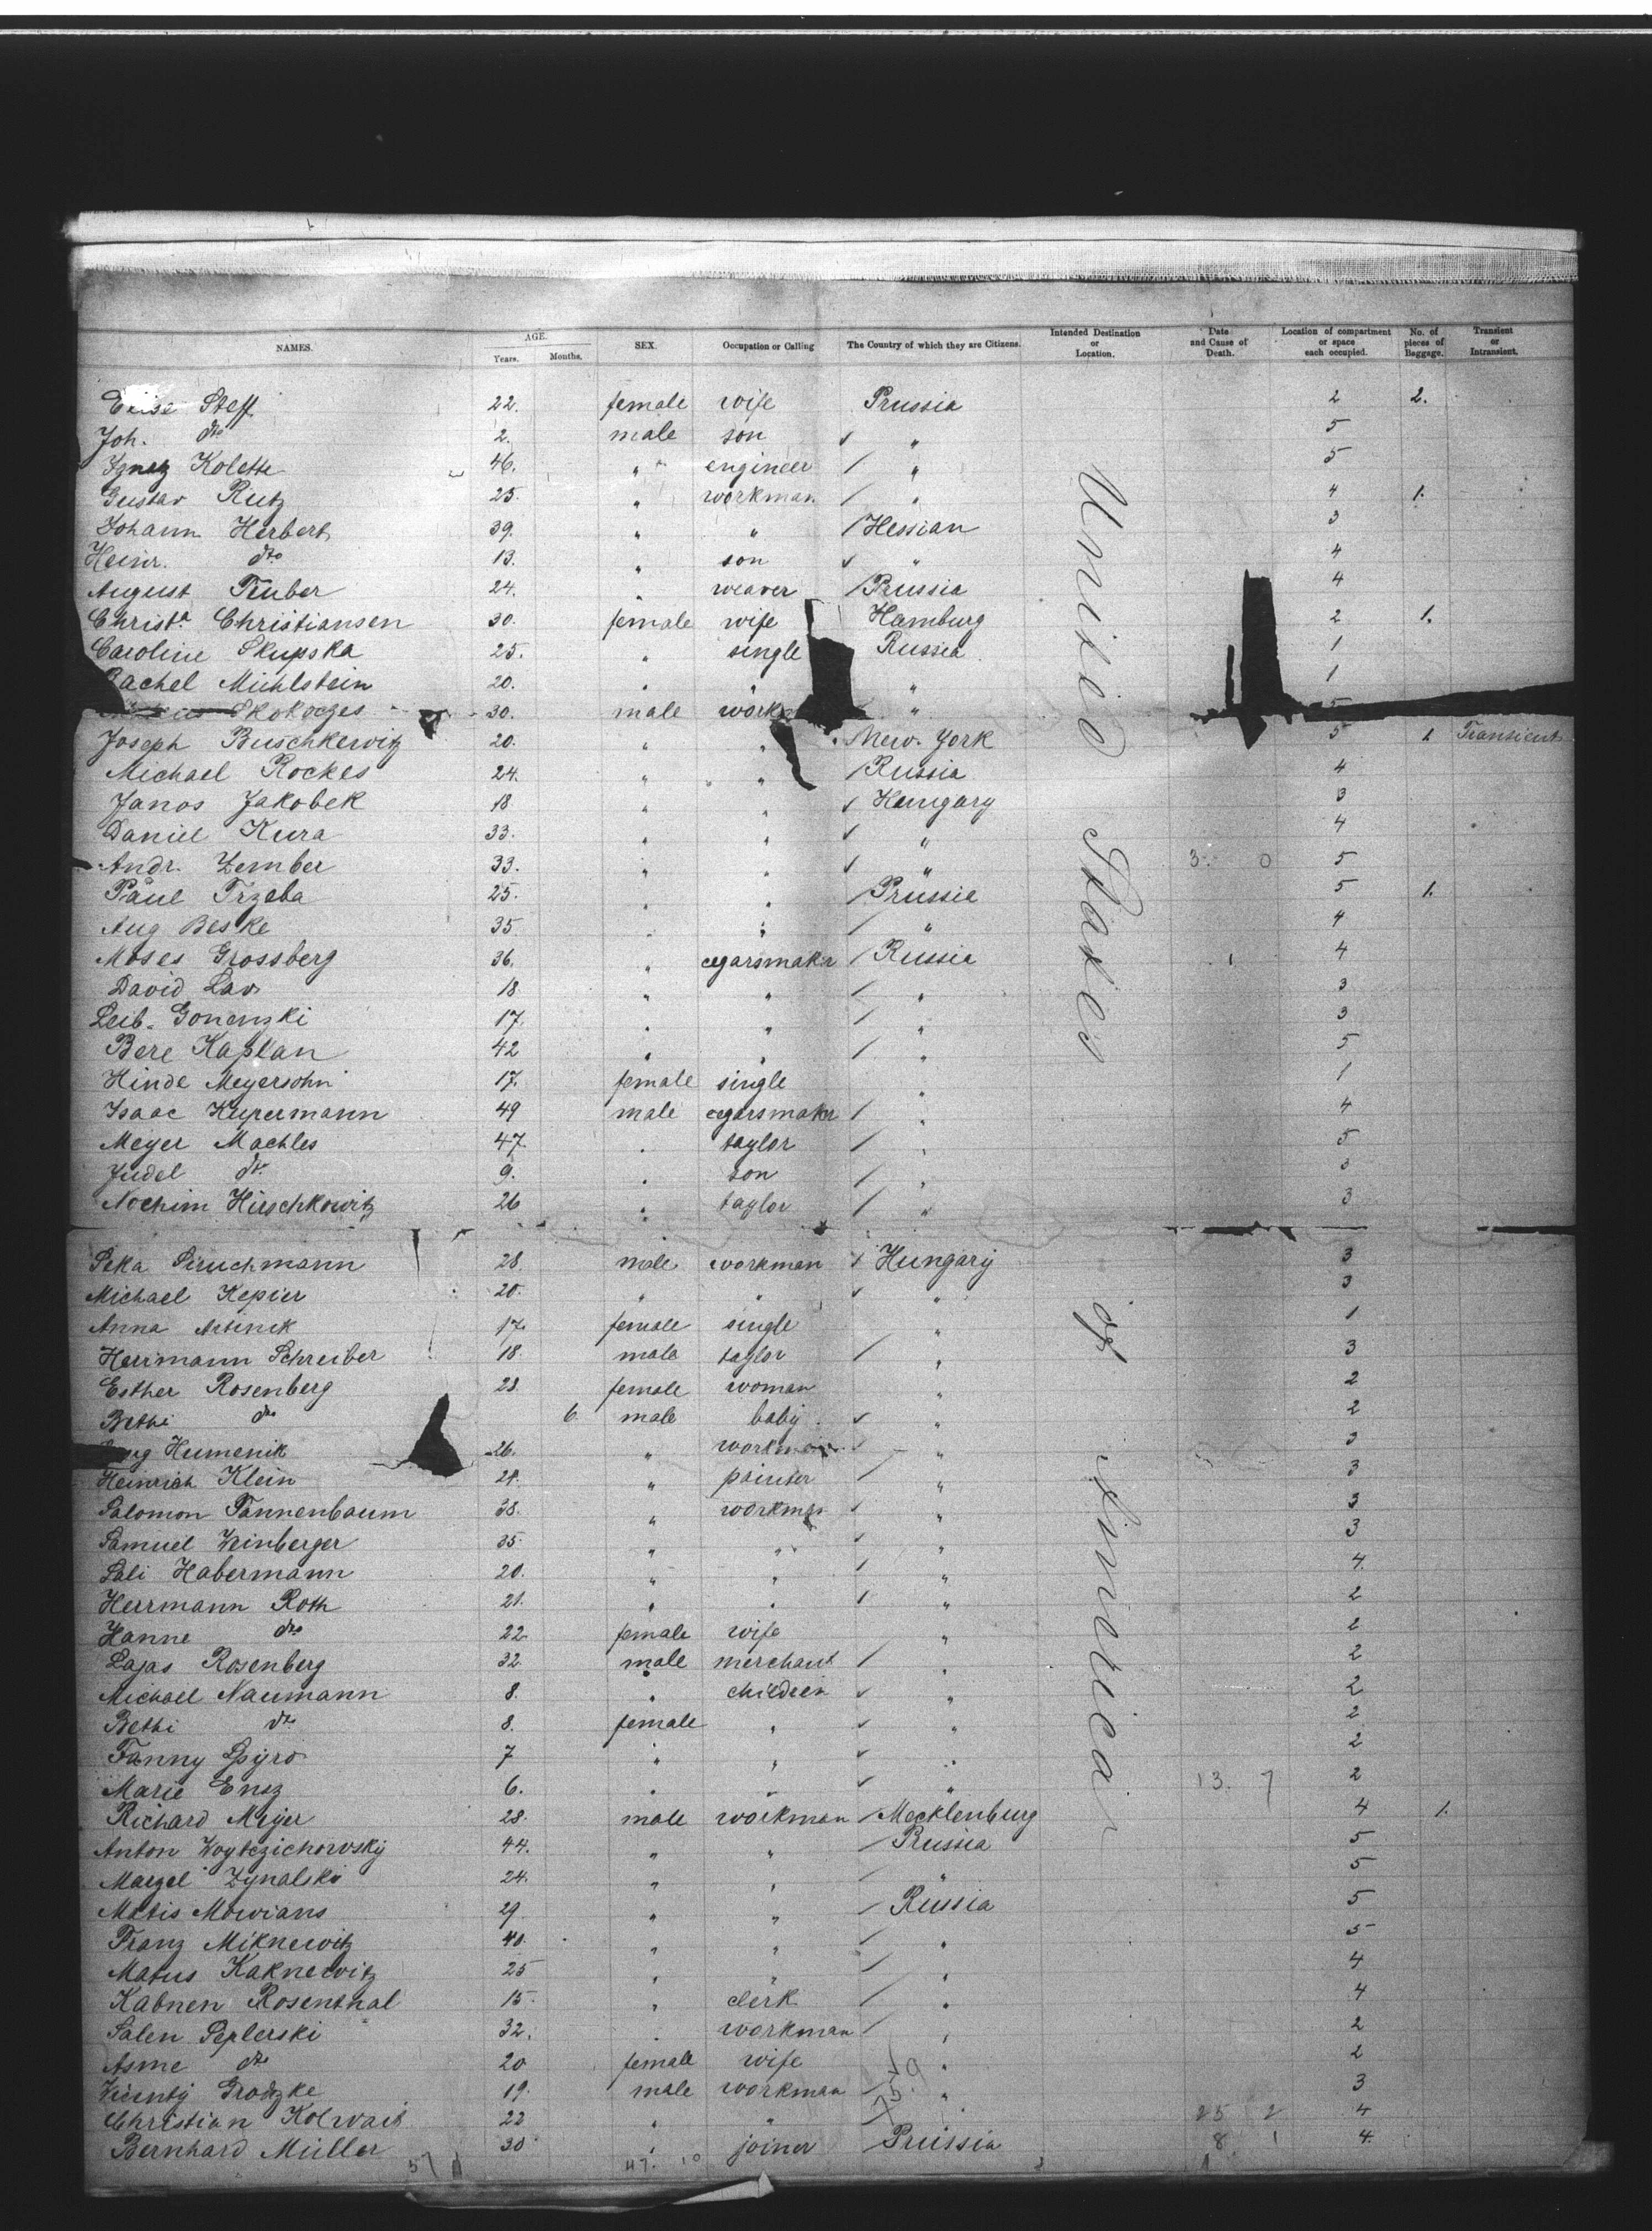 NAMES. AGE. Years. Months. SEX. Occupation or Calling The Country of which they are Citizens. Intended Destination or Location. Date and Cause of Death. Location of compartment or space each occupied. No. of pieces of Baggage. Transient or Intransient.
Steff 22. female wife Prussia 2 2.
Joh. dto 2. male son " 5
Ignatz Kolette 46. " engineer " 5
Gustav Rutz 25. " workman " 4 1.
Johann Herbert 39. " " Hessian 3
Heinr. dto 13. " son " 4
August Teuber 24. " weaver Prussia 4
Christa Christiansen 30. female wife Hamburg 2 1.
Caroline Skupska 25. " single Russia 1
Rachel Mühlstein 20. " " " 1
30. male work " 5
Joseph Buschkewitz 20. " " New. York 5 1 Transient
Michael Rockes 24. " " Russia 4
Janos Jakobek 18 " " Hungary 3
Daniel Kura 33. " " " 4
Andr. Zember 33. " " " 5
Paul Trzeba 25. " " Prussie 5 1.
Aug Beske 35. " " " 4
Moses Grossberg 36. " cegarsmakr Russia 4
David Lav 18 " " " 3
Leib. Gonenski 17. " " " 3
Bere Kaplan 42 " " " 5
Hinde Meyersohn 17. female single " 1
Isaac Kupermann 49 male cegarsmakr " 4
Meyer Machles 47. " taylor " 5
Judel dto 9. " son " 3
Nochim Hirschkowitz 26 " taylor " 3
Seka Siruchmann 28. male workman Hungary 3
Michael Kepier 20. " " " 3
Anna 17. female single " 1
Herrmann Schreiber 18. male taylor " 3
Esther Rosenberg 28. female woman " 2
Bethi dto 6 male baby " 2
Humenik 26. " workman " 3
Heinrich Klein 24. " painter " 3
Salomon Tannenbaum 38. " workman " 3
Samuel Weinberger 35. " " " 3
Sali Habermann 20. " " " 4.
Herrmann Roth 21. " " " 2
Hanne dto 22 female wife " 2
Lajas Rosenberg 32. male merchant " 2
Michael Naumann 8. " children " 2
Bethi dto 8. female " " 2
Fanny Spiro 7 " " " 2
Marie Ensz 6. " " " 2
Richard Meyer 28. male workman Mecklenburg 4 1.
Anton Woytczichowsky 44. " " Russia 5
Margel Zynalski 24. " " " 5
Matis Mowians 29. " " Russia 5
Franz Miknewitz 40. " " " 5
Matus Kaknewitz 25 " " " 4
Kabnen Rosenthal 15. " clerk " 4
Salen Seplerski 32. " workman " 2
Asme dto 20 female wife " 2
Grodzke 19. male workman " 3
Christian Kolwait 22 " " " 4
Bernhard Müller 30 " joiner Prussia 4.
United States of America
57 47. 10